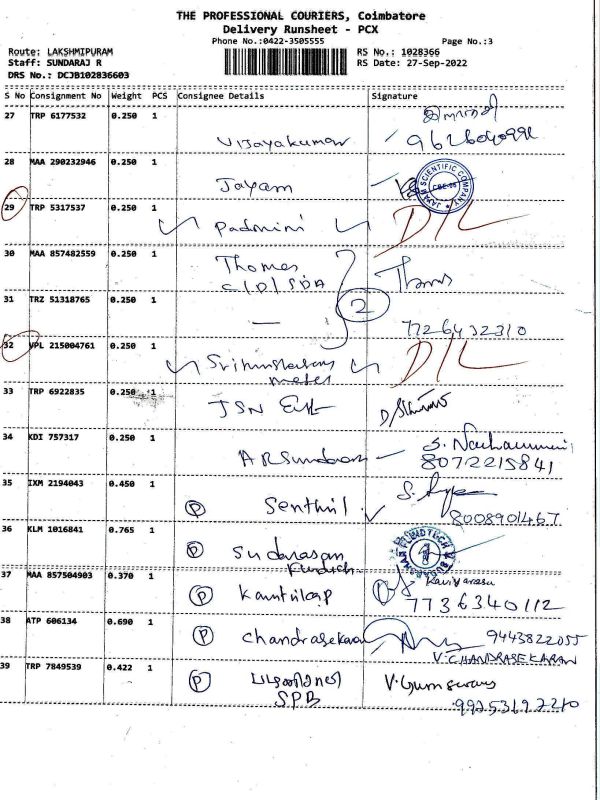 THE PROFESSIONAL COURIERS, Coimbatore
Delivery Runsheet - PCX
Phone No.:0422-3505555
Page No.:3
Route: LAKSHMIPURAM
Staff: SUNDARAJ R
DRS No.: DCJB102836603
RS No.: 1028366
RS Date: 27-Sep-2022
S No Consignment No Weight PCS Consignee Details Signature
27 TRP 6177532 0.250 1
Vijayakumar
28 MAA 290232946 0.250 1
Jayam
29 TRP 5317537 0.250 1
Padmini D/L
30 MAA 857482559 0.250 1
Thomas
2
31 TRZ 51318765 0.250 1
7726432310
32 VPL 215004761 0.250 1
D/L
33 TRP 6922835 0.250 1
JSN
34 KDI 757317 0.250 1
ARSundaram
8072215841
35 IXM 2194043 0.450 1
P Senthil
8008901467
36 KLM 1016841 0.765 1
P Sudarasan
37 MAA 857504903 0.370 1
P Kaviyarasu
7736340112
38 ATP 606134 0.690 1
P Chandrasekaran 9443822055
V.CHANDRASEKARAN
39 TRP 7849539 0.422 1
P
SPB